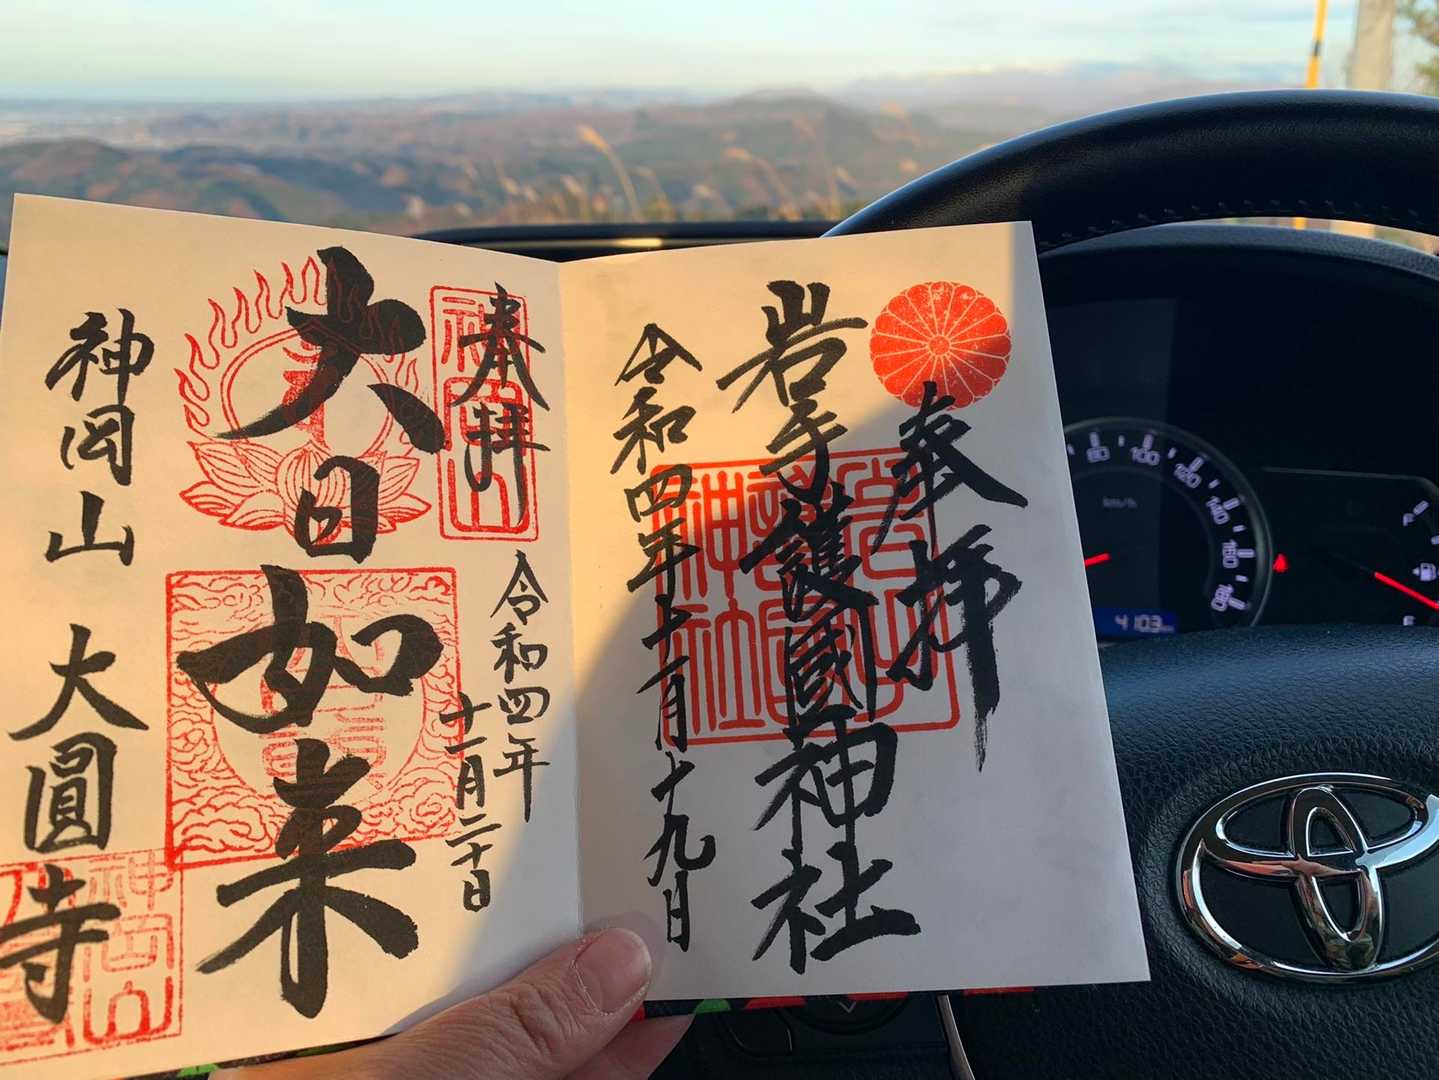 奉拝
岩手護國神社
令和四年十一月十九日
奉拝
令和四年
十一月二十日
大日如来
神岡山 大圓寺
80
100
120
140
160
180
km/h
4103
F
E